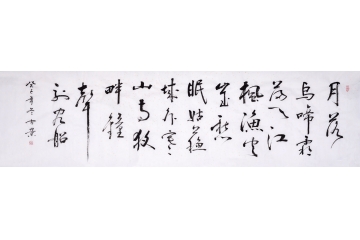 月落
烏啼霜
滿天江
楓漁火
對愁
眠姑蘇
城外寒
山寺夜
畔鐘
聲
到客船
癸巳年冬